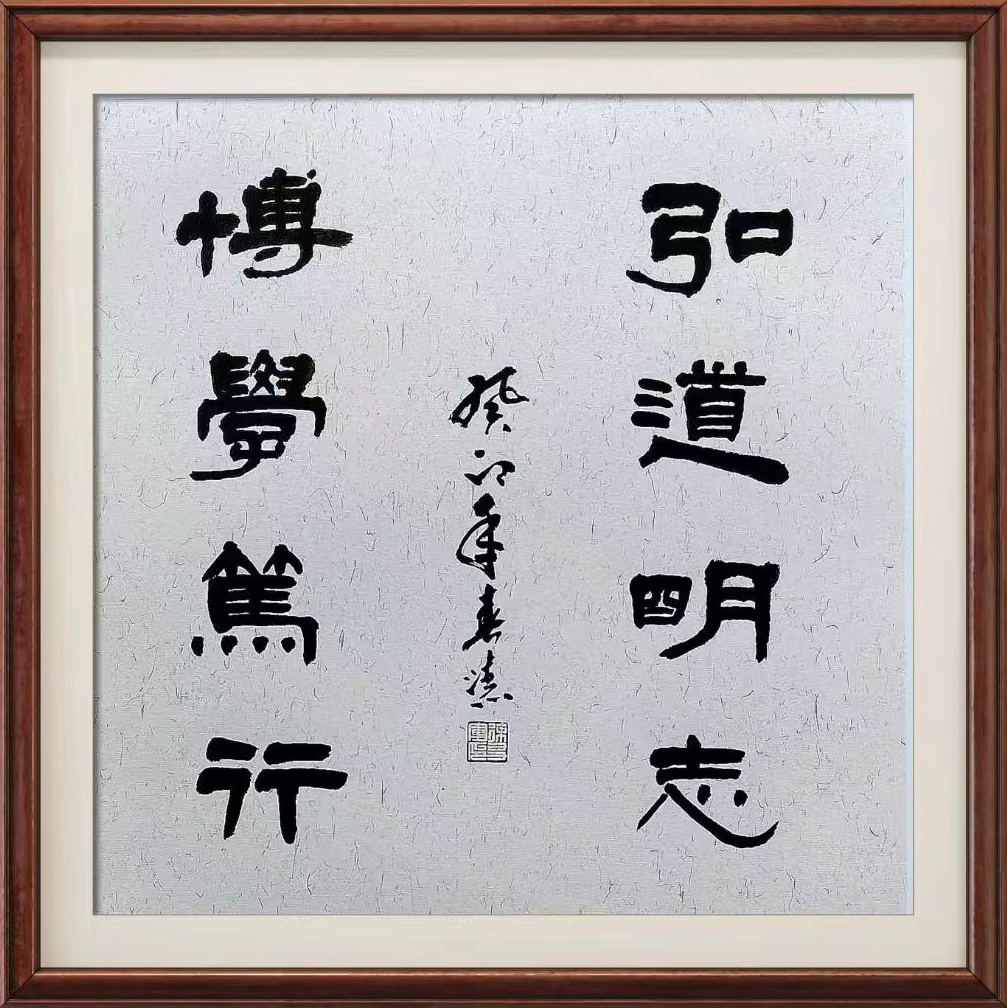 弘道明志
癸卯年春
博學篤行